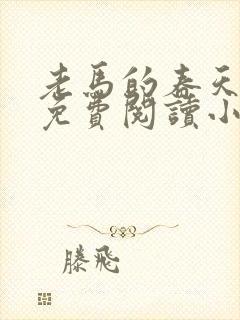 老馬的春天
免費閱讀小
滕飛